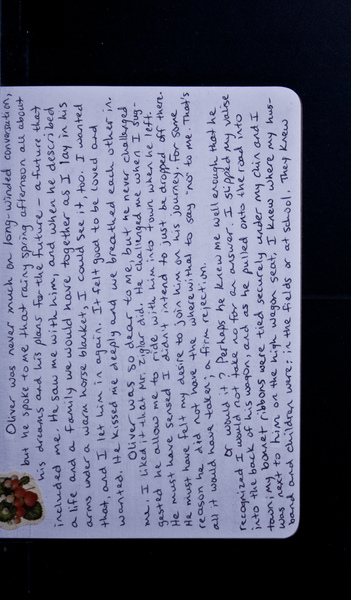 Oliver was never much on long-winded conversation,
but he spoke to me, that rainy spring afternoon all about
his dreams and his plans for the future - a future that
included me. He saw me with him, and when he described
a life and a family we would have together as I lay in his
arms under a warm horse blanket, I could See it, too. I wanted
that, and I let him in again. It felt good to be loved and
wanted. He kissed me deeply and we breathed each other in.
Oliver was so dear to me, but he never challenged
me. I liked it that Mr. Ziglar did. He challenged me when I sug-
gested he allow me to ride with him into town when he left.
He must have sensed I didn't intend to just be dropped off there.
He must have felt my desire to join him on his journey. For some
reason he did not have the wherewithal to say "no" to me. That's
all it would have taken; a firm rejection.
Or would it? Perhaps he knew me well enough that he
recognized I would not take no for an answer. I slipped my valise
into the back of his wagon, and as he pulled onto the road into
town; my bonnet ribbons were tied securely under my chin and I
was next to him on the high wagon seat, I knew where my hus-
band and children were: in the fields or at school. They knew